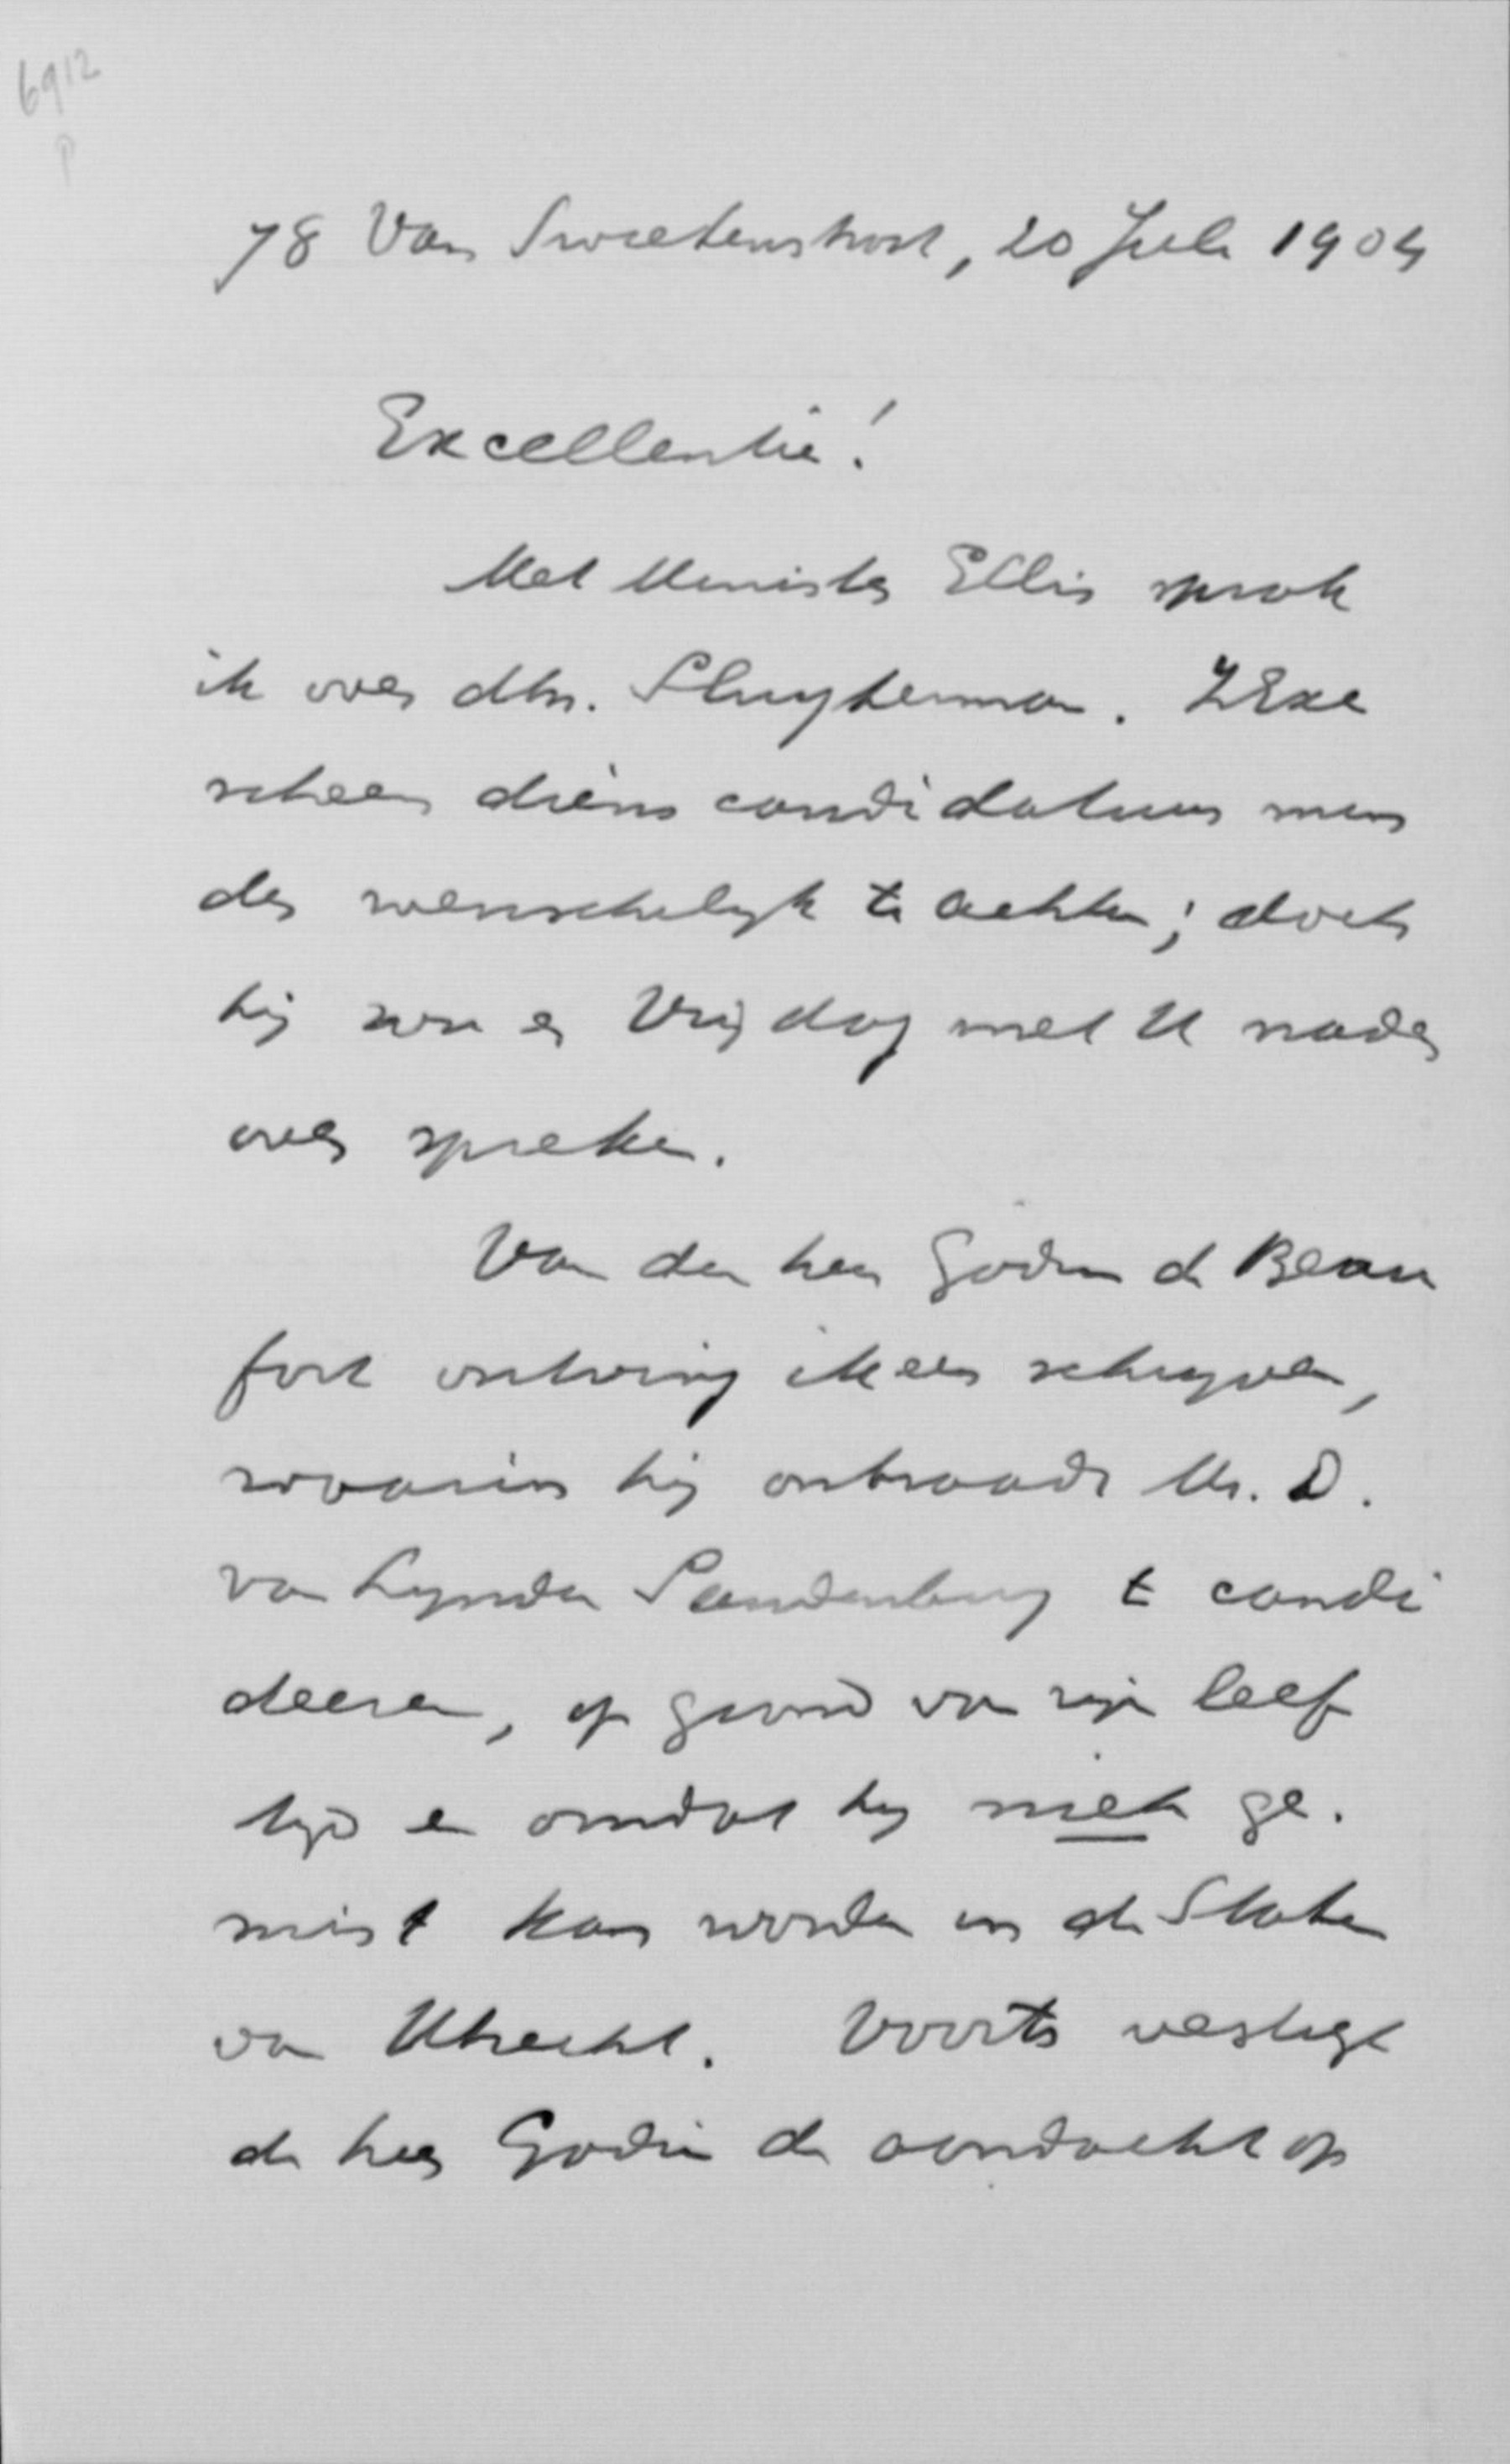 6912
P
78 Van Swietenstraat, 20 Juli 1904
Excellentie!
Met Minister Ellis sprak
ik over dhr. Sluyterman. ZExc
scheen diens candidatuur min
der wenschelijk te achten; doch
hij zou er Vrijdag met U nader
over spreken.
Van den heer Godin de Beau
fort ontving ik een schrijven,
waarin hij ontraadt Mr. D.
van Lynden Sandenburg te candi
deeren, op grond van zijn leef
tijd en omdat hij niet ge.
mist kan worden in de Staten
van Utrecht. Voorts vestigt
de heer Godin de aandacht op